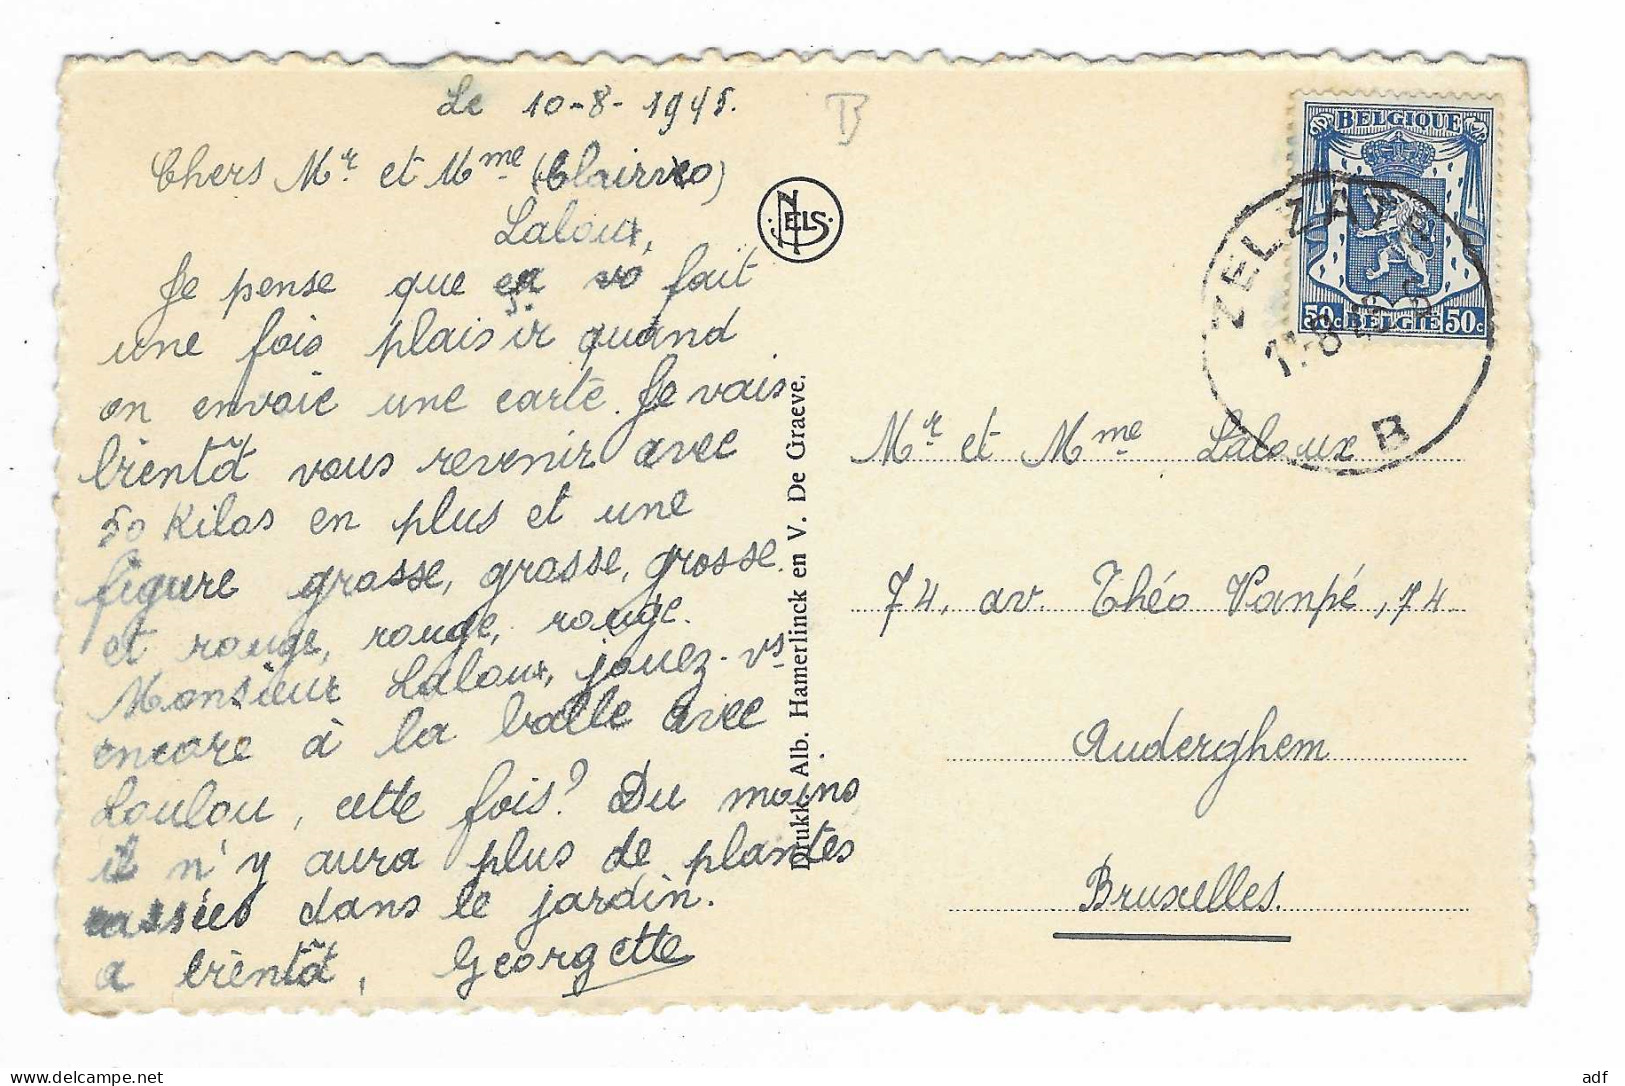 Le 10-8-1945.
Chers Mr et Mme
Laloux,
Je pense que vs fait
une fois plaisir quand
on envoie une carte. Je vais
bientôt vous revenir avec
50 Kilos en plus et une
figure grasse, grasse, grosse.
et rouge, rouge, rouge.
Monsieur Laloux, jouez-vs
encore à la balle avec
Loulou, cette fois? Du moins
il n'y aura plus de plantes
cassées dans le jardin.
a bientôt, Georgette
B
NELS
Drukk. Alb. Hamerlinck en V. De Graeve.
BELGIQUE
50c BELGIE 50c
ZELZATE
11-8
B
Mr et Mme Laloux
74, av. Théo Vanpé, 74
Auderghem
Bruxelles.
adf